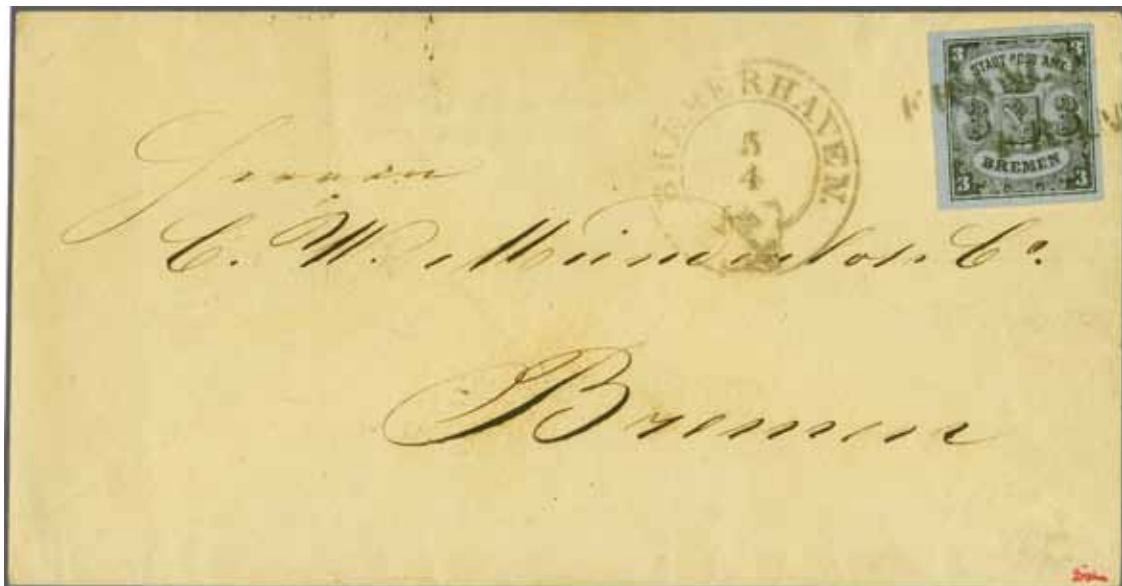 3 3
STADT POST AMT.
3 3
BREMEN
3 3
BREMERHAVEN
5
4
Herren
C. W.
Co.
Bremen